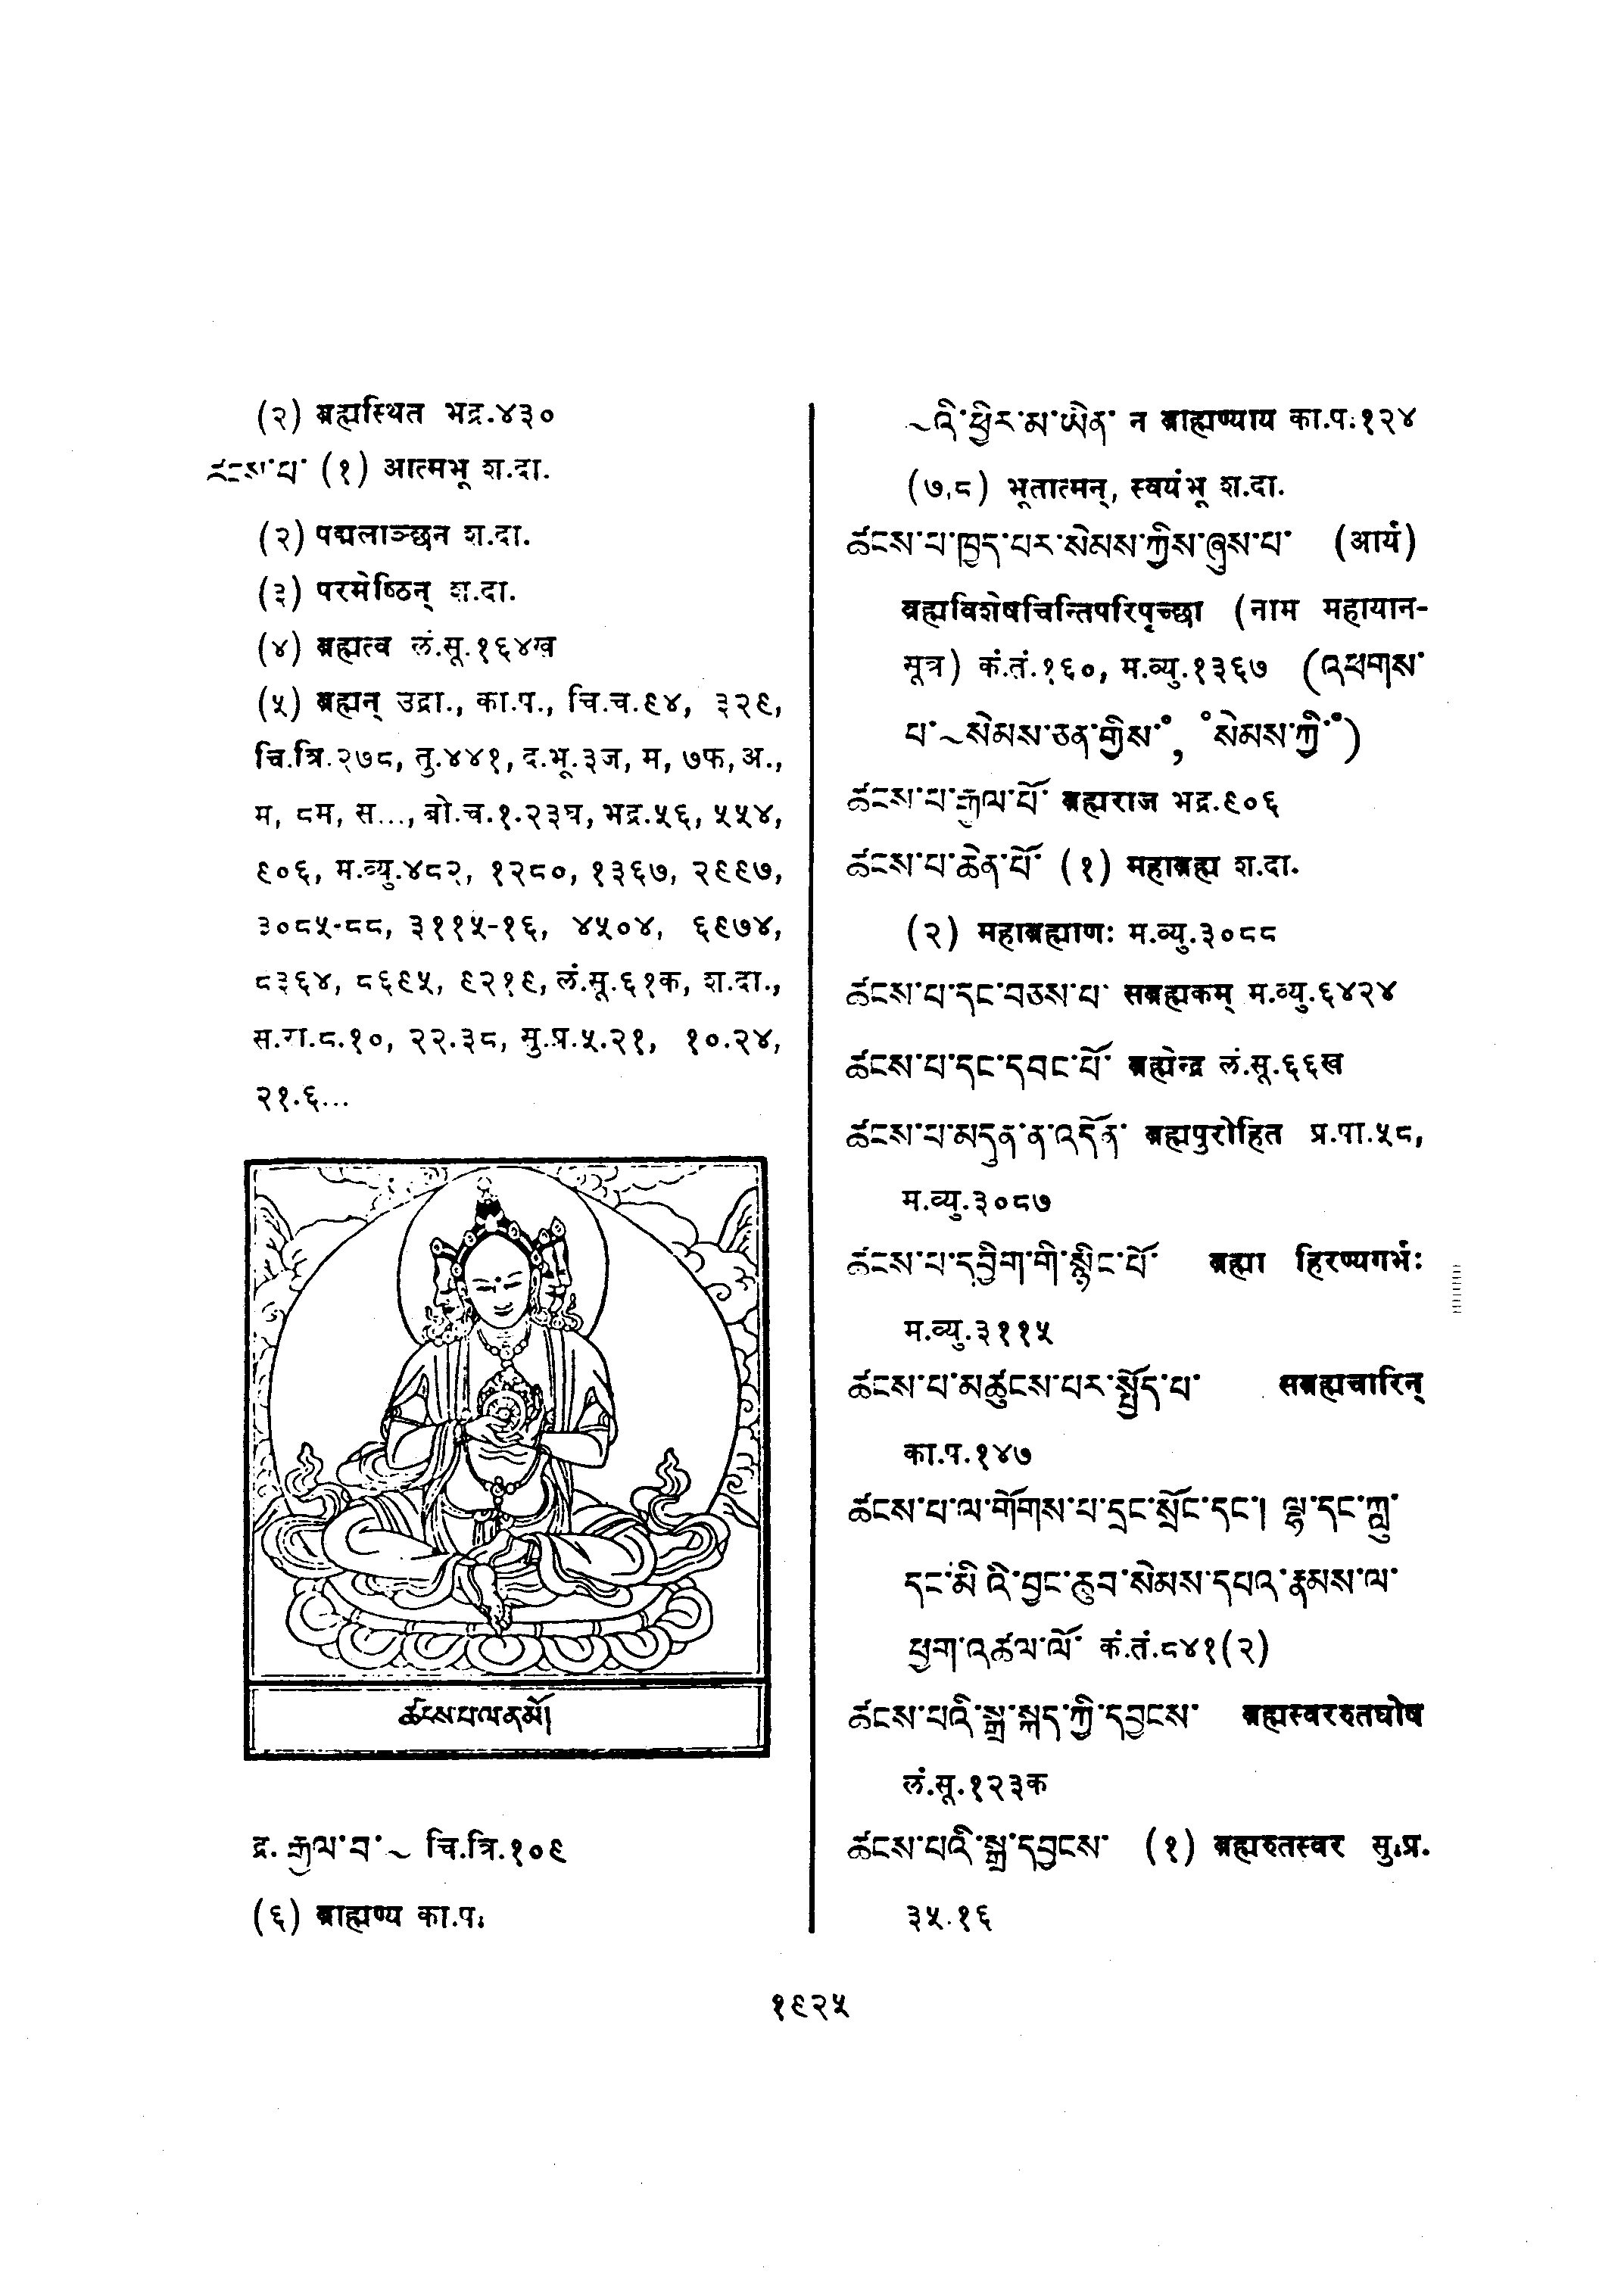 (२) ब्रह्मस्थित भद्र.४३०
ཚངས་པ་ (१) आत्मभू श.दा.
(२) पद्मलाञ्छन श.दा.
(३) परमेष्ठिन् श.दा.
(४) ब्रह्मत्व लं.सू.१६४ख
(५) ब्रह्मन् उद्रा., का.प., चि.च.९४, ३२९,
चि.त्रि.२७८, तु.४४१, द.भू.३ज, म, ७फ, अ.,
म, ८म, स..., बो.च.१.२३घ, भद्र.५६, ५५४,
९०६, म.व्यु.४८२, १२८०, १३६७, २९९७,
३०८५-८८, ३११५-१६, ४५०४, ६९७४,
८३६४, ८६९५, ९२१९, लं.सू.६१क, श.दा.,
स.ग.८.१०, २२.३८, सु.प्र.५.२१, १०.२४,
२१.६...
ཚངས་པ་ལ་ན་མོ།
द्र. རྒྱལ་བ་ ~ चि.त्रि.१०९
(६) ब्राह्मण्य का.प.
~འི་ཕྱིར་མ་ཡིན་ न ब्राह्मण्याय का.प.१२४
(७,८) भूतात्मन्, स्वयंभू श.दा.
ཚངས་པ་ཁྱད་པར་སེམས་ཀྱིས་ཞུས་པ་ (आर्य)
ब्रह्मविशेषचिन्तिपरिपृच्छा (नाम महायान-
सूत्र) कं.तं.१६०, म.व्यु.१३६७ (འཕགས་
པ་~སེམས་ཅན་གྱིས་°, °སེམས་ཀྱི་°)
ཚངས་པ་རྒྱལ་པོ་ ब्रह्मराज भद्र.९०६
ཚངས་པ་ཆེན་པོ་ (१) महाब्रह्म श.दा.
(२) महाब्रह्माणः म.व्यु.३०८८
ཚངས་པ་དང་བཅས་པ་ सब्रह्मकम् म.व्यु.६४२४
ཚངས་པ་དང་དབང་པོ་ ब्रह्मेन्द्र लं.सू.६६ख
ཚངས་པ་མདུན་ན་འདོན་ ब्रह्मपुरोहित प्र.पा.५८,
म.व्यु.३०८७
ཚངས་པ་དབྱིག་གི་སྙིང་པོ་ ब्रह्मा हिरण्यगर्भः
म.व्यु.३११५
ཚངས་པ་མཚུངས་པར་སྤྱོད་པ་ सब्रह्मचारिन्
का.प.१४७
ཚངས་པ་ལ་གོགས་པ་དྲང་སྲོང་དང་། ལྷ་དང་ཀླུ་
དང་མི་འི་བྱང་ཆུབ་སེམས་དཔའ་རྣམས་ལ་
ཕྱག་འཚལ་ལོ་ कं.तं.८४१(२)
ཚངས་པའི་སྒྲ་སྐད་ཀྱི་དབྱངས་ ब्रह्मस्वररुतघोष
लं.सू.१२३क
ཚངས་པའི་སྒྲ་དབྱངས་ (१) ब्रह्मरुतस्वर सु.प्र.
३५.१६
१९२५